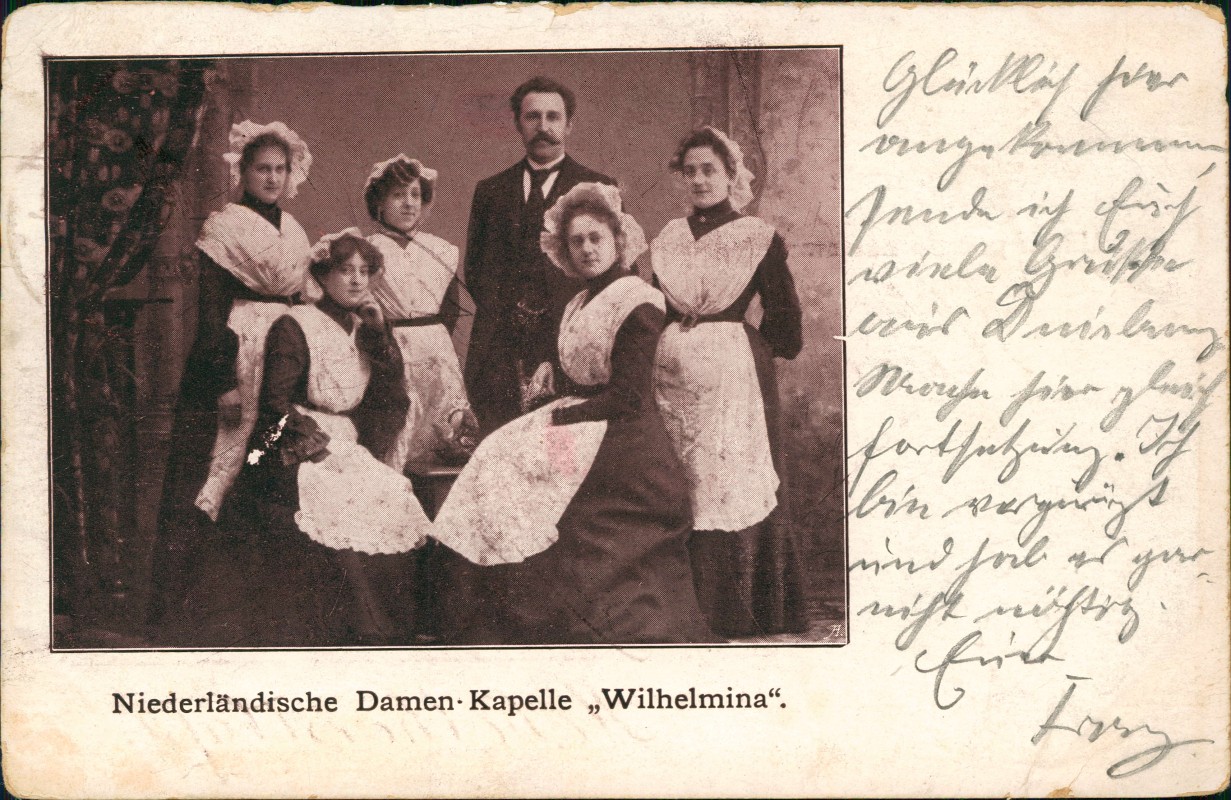 Niederländische Damen-Kapelle „Wilhelmina“.
Glücklich hier
angekommen,
sende ich Euch
viele Grüße
aus Duisburg
Mache hier gleich
Fortsetzung. Ich
bin vergnügt
und hab es gar
nicht nöthig.
Euer